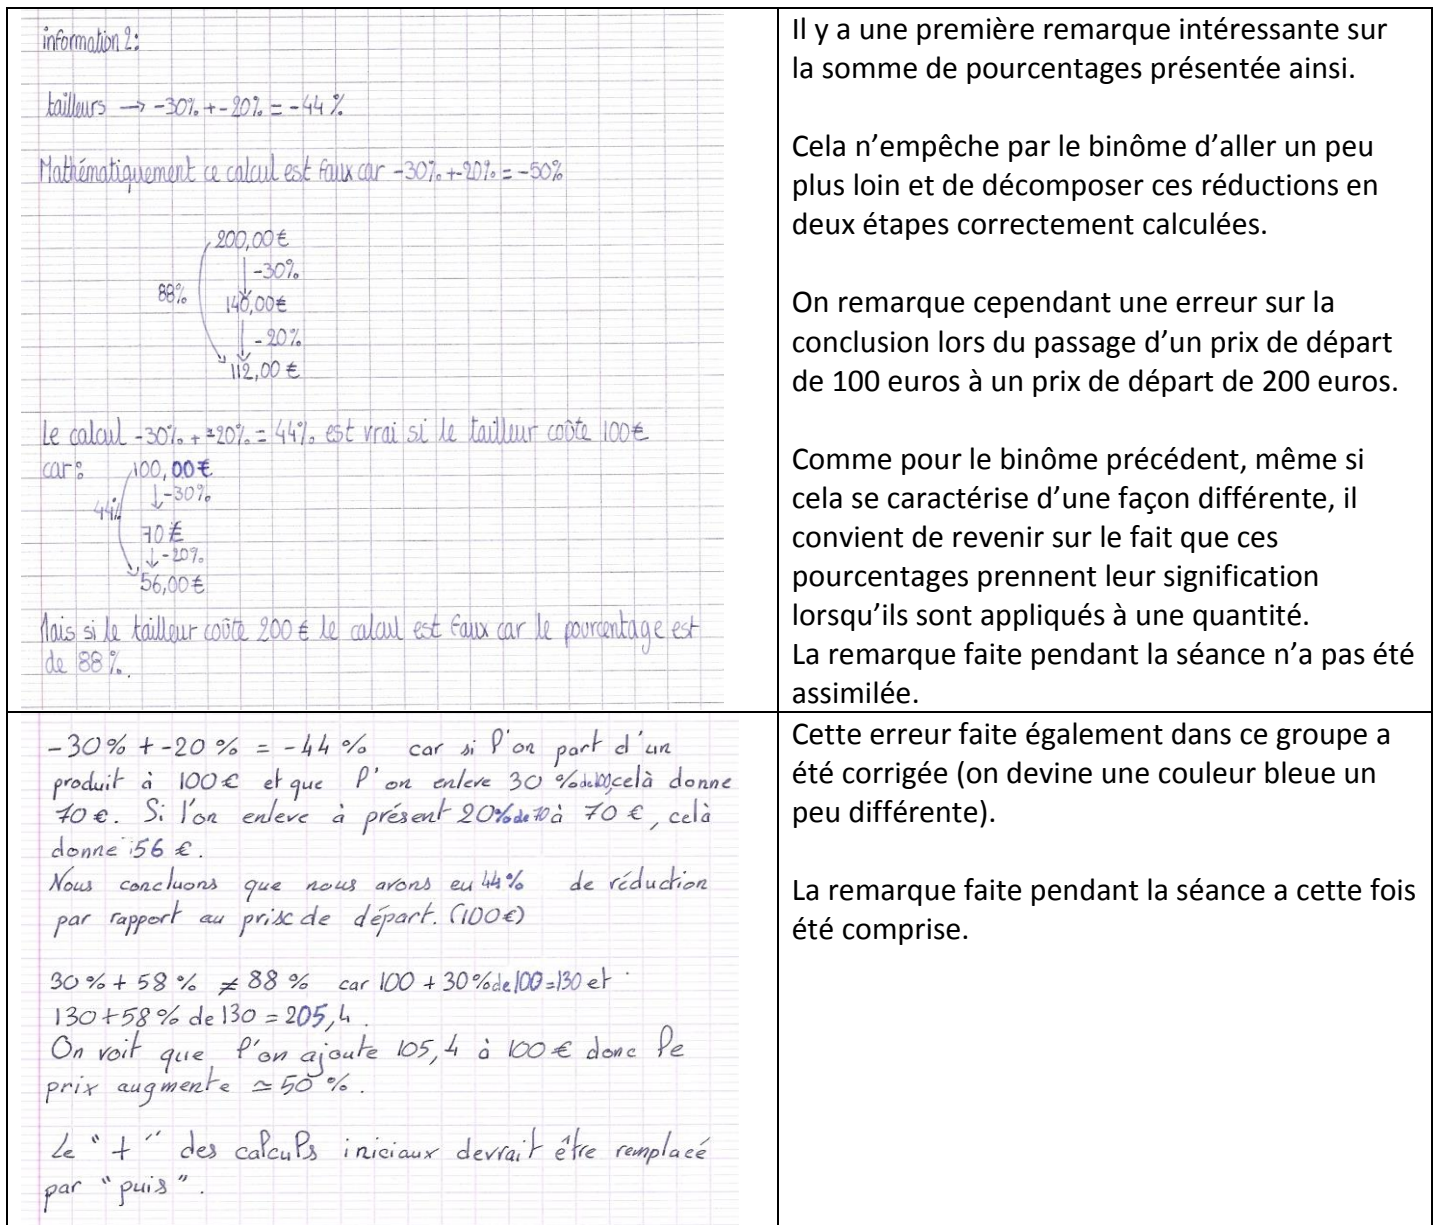 information 2:
tailleurs → -30% + -20% = -44 %
Mathématiquement ce calcul est faux car -30% + -20% = -50%
200,00 €
-30%
88%
140,00€
- 20%
112,00 €
Le calcul -30% + -20% = 44% est vrai si le tailleur coûte 100€
car :
100,00€
-30%
44%
70 €
-20%
56,00 €
Mais si le tailleur coûte 200 € le calcul est faux car le pourcentage est
de 88 %.
Il y a une première remarque intéressante sur
la somme de pourcentages présentée ainsi.
Cela n’empêche par le binôme d’aller un peu
plus loin et de décomposer ces réductions en
deux étapes correctement calculées.
On remarque cependant une erreur sur la
conclusion lors du passage d’un prix de départ
de 100 euros à un prix de départ de 200 euros.
Comme pour le binôme précédent, même si
cela se caractérise d’une façon différente, il
convient de revenir sur le fait que ces
pourcentages prennent leur signification
lorsqu’ils sont appliqués à une quantité.
La remarque faite pendant la séance n’a pas été
assimilée.
-30% + -20 % = -44 % car si l'on part d'un
produit à 100€ et que l'on enleve 30 % de 100, celà donne
70 €. Si l'on enleve à présent 20% de 70 à 70 €, celà
donne 56 €.
Nous concluons que nous avons eu 44% de réduction
par rapport au prix de départ. (100€)
30 % + 58 % ≠ 88 % car 100 + 30% de 100 = 130 et
130 + 58 % de 130 = 205,4.
On voit que l'on ajoute 105,4 à 100 € donc le
prix augmente ≃ 50 %.
Le "+" des calculs iniciaux devrait être remplacé
par "puis".
Cette erreur faite également dans ce groupe a
été corrigée (on devine une couleur bleue un
peu différente).
La remarque faite pendant la séance a cette fois
été comprise.